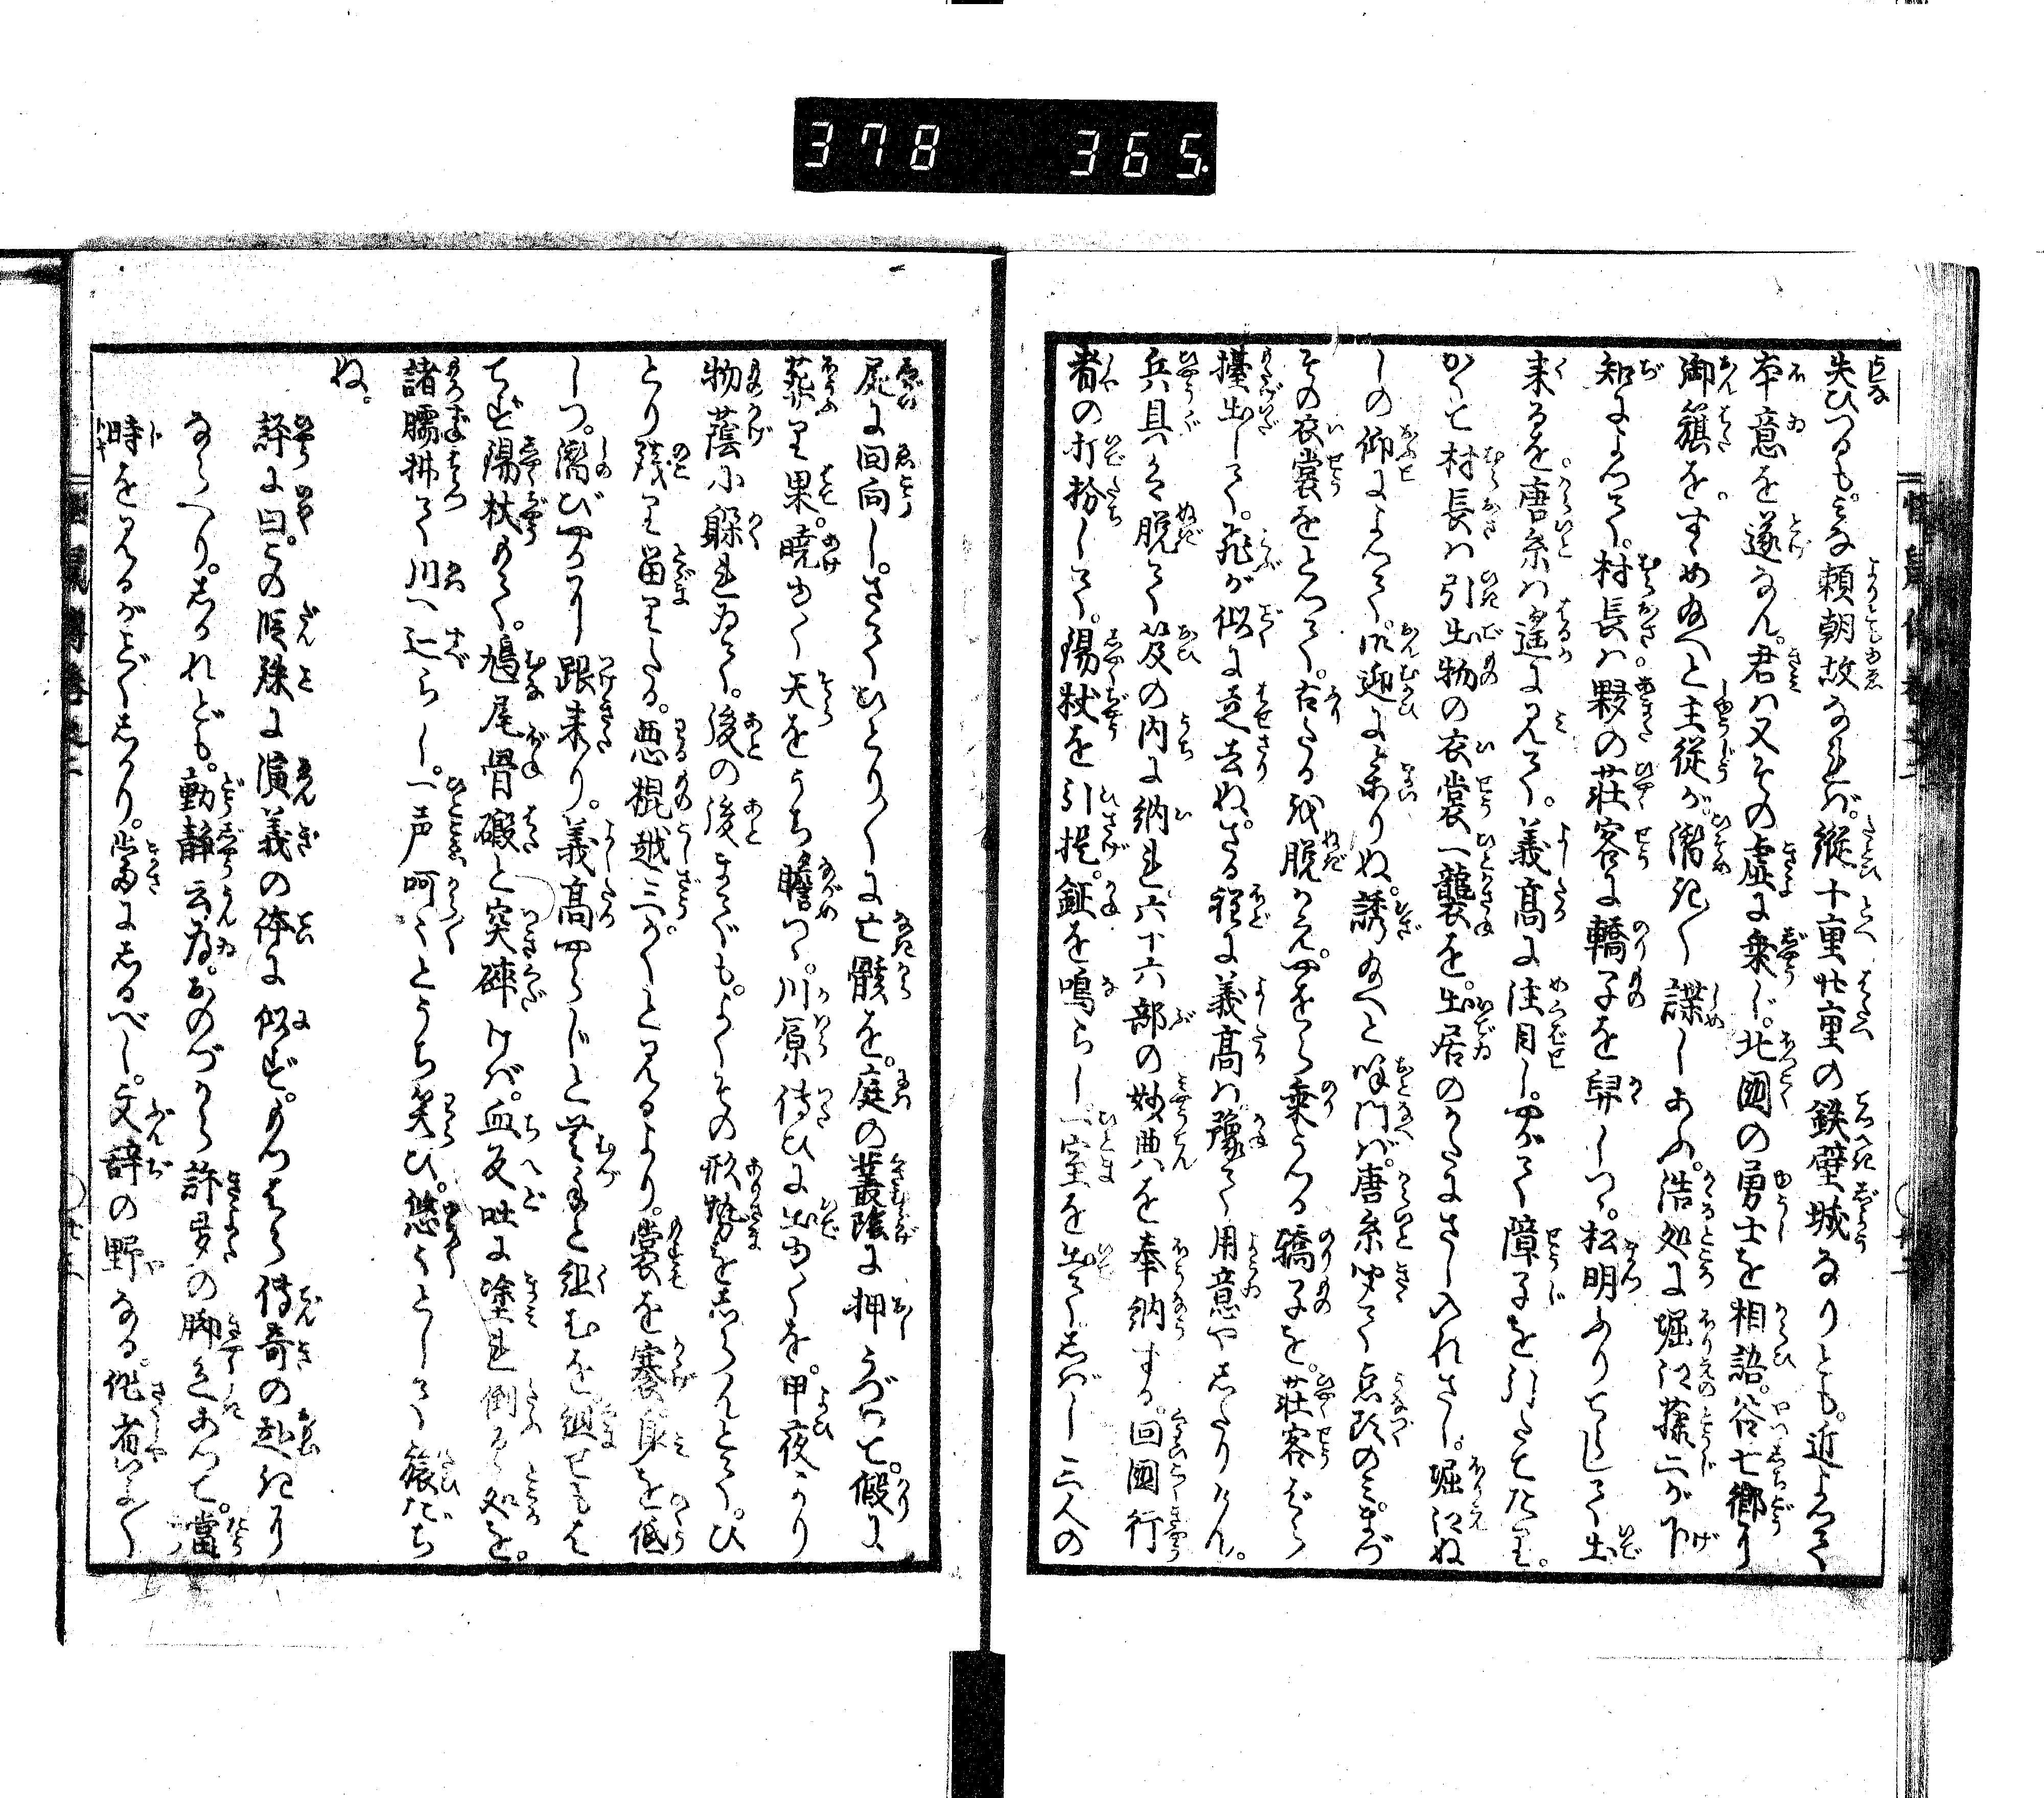 378 365
失ひつるも。みな頼朝故なれば。縦十重廿重の鉄壁城なりとも。近よつて
本意を遂なん。君は又その虚に乗じ。北國の勇士を相語。谷七郷に
御籏を。すゝめ給へと主従が。潜めき〳〵謀しあふ。浩処に堀江藤二が下
知によつて。村長は。夥の荘客に轎子を舁しつゝ。松明ふりてらして出
来るを。唐糸は遙に見て。義高に注目し。やがて障子を引たてたれ。
かくて村長は引出物の衣裳一襲を。出居のかたにさし入れさし。堀江ぬ
しの仰によつて。御迎に参りぬ。誘給へと呼門ば。唐糸聞て点頭のみ。まづ
その衣裳をとつて。右たる我脱かえ。やをら乗うつる轎子を。荘客ばら
擡出して。飛が似に走去ぬ。さる程に義高は。豫て用意やしたりけん。
兵具を脱て笈の内に納れ。六十六部の妙典を奉納する。回國行
者の打扮して。錫杖を引提。鉦を鳴らし。一室を出てしばし三人の
屍に回向し。さてひとり〳〵に亡骸を。庭の叢陰に押うづめて。假に
葬り果。暁ゆく天をうち瞻つゝ。川原傳ひに出ゆくを。甲夜より
物蔭に躱れゐて。後の後までも。よくその形勢を志らんとて。ひ
とり残り留りたる。悪棍越三が。〳〵と見るより。裳を褰身を低
しつ。潜びやかに跟来り。義高やらじと無手と組むを組せもは
てず錫杖もて。鳩尾骨磤と突砕けば。血反吐に塗れ倒るゝ処を。
諸臑拂て川へ辷らし。一声呵々とうち笑ひ。悠々として旅だち
ぬ。
評に曰。この段殊に演義の体に似ず。もつはら傳奇の趣きに
ならへり。しかれども。動静云為。おのづから許多の脚色あつて。當
時を見るがごとくしかり。當にしるべし。文辞の野なる。作者いよ〳〵